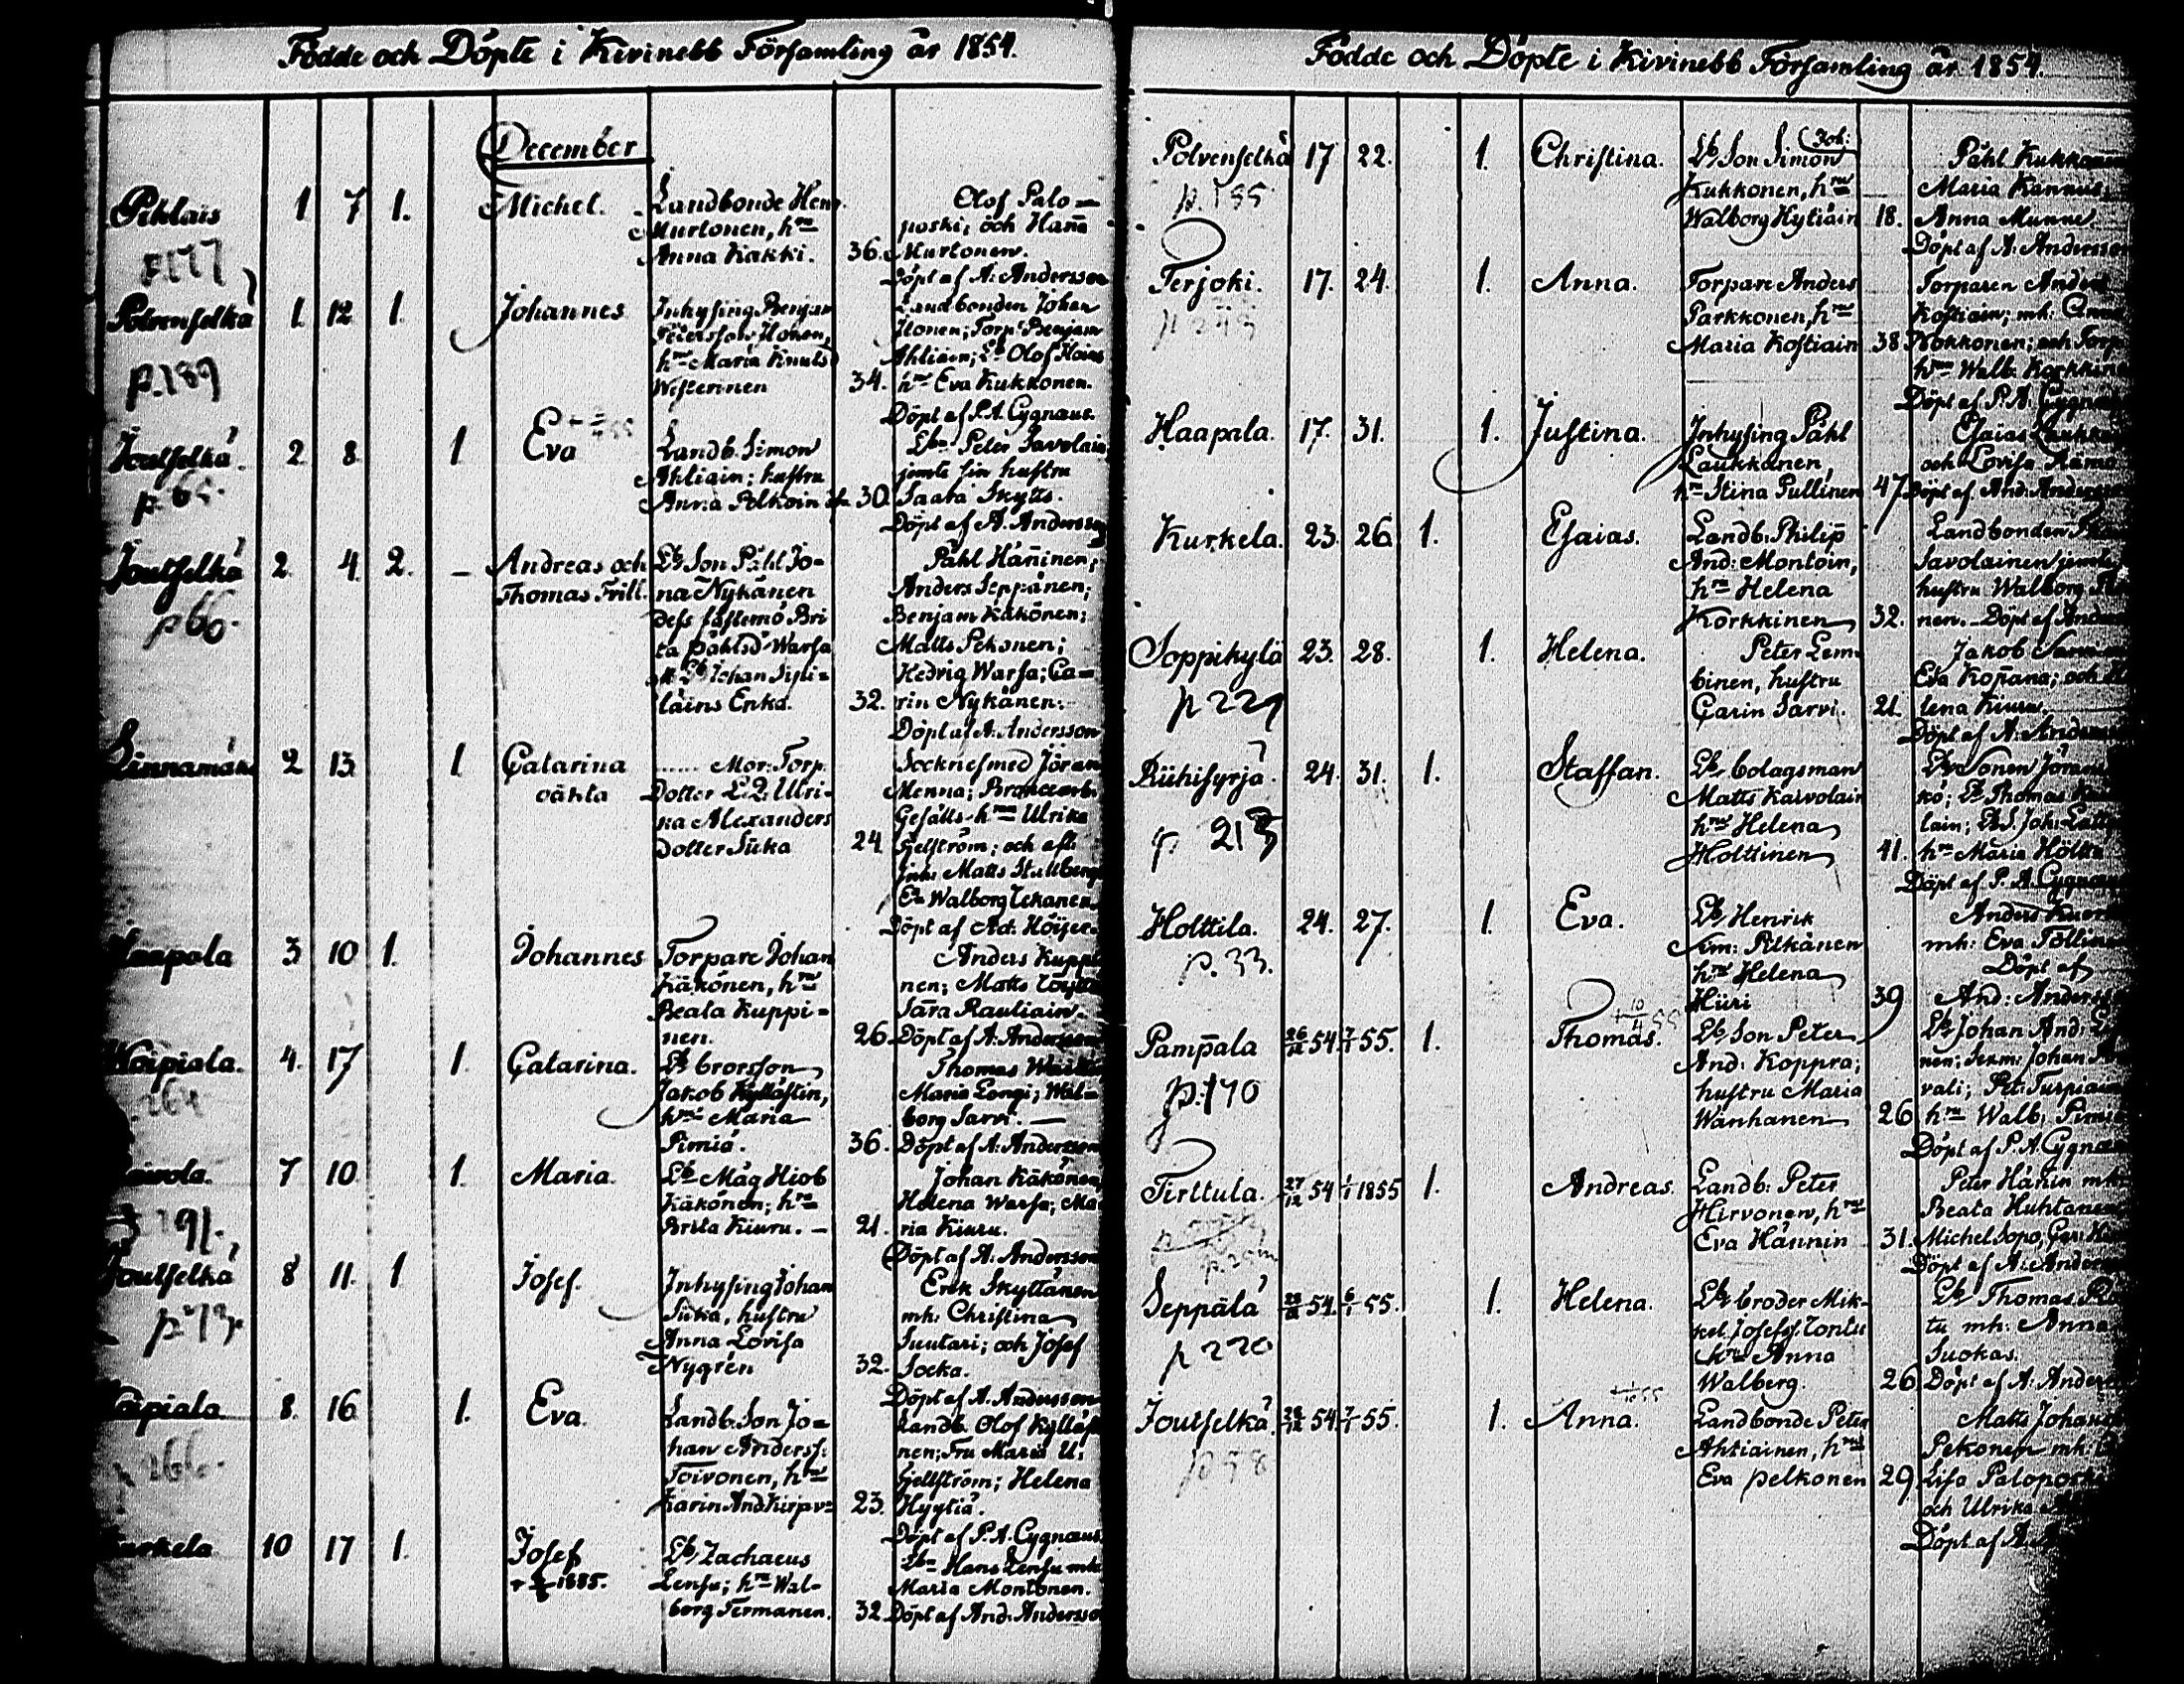 Födde och Döpte i Kivinebb Församling år 1854.
December
Pihlais 1 7 1. Michel. Landbonde Henr.
Murtonen, hru
Anna Kakki. 36.
Olof Palo=
poski; och Hañª
Murtonen.
Döpt af A: Andersson
p.177
Polvenselkä 1. 12 1. Johannes Inhysing Benjam
Peterss. Ilonen,
hru Maria Knutsd
Westerinen 34.
Landbonden Johan
Ilonen; Torp: Benjam
Ahliain; Lb Olof
hru Eva Kukkonen.
Döpt af P. A. Cygnæus.
p.189
Joutselkä. 2 8 1 Eva Landb. Simon
Ahliain; hustru
Anna Pelkoin 30.
Peter Savolain
jemte sin hustru
Saara Skytts.
Döpt af A. Andersson
p. 65.
Joutselkä 2. 4. 2. — Andreas och
Thomas Trill.
Lb Son Påhl Jo=
na Nykänen
Dess fästemö Bri
ta Påhlsd Warsa
Lb Johan Sipi=
läins Enka. 32.
Påhl Häñinen;
Anders Seppänen;
Benjam Käkönen;
Matts Pekonen;
Hedvig Warsa; Ca=
rin Nykänen.
Döpt af A. Andersson
p 66.
Linnamäki 2 13 1 Catarina
oäkta
...... Mor: Torp.
Dotter Ulri-
ka Alexanders
dotter Siika 24
Socknesmed Jöran
Menna;
Gesälls hru Ulrika
Gjelström; och afl:
Matts Stallberg
Ea Walborg Ickanen.
Döpt af Ad: Höijer.
Haapala 3 10 1. Johannes Torpare Johan
Käkönen, hru
Beata Kuppi=
nen. 26.
Anders Kuppi
nen; Matts
Sara Rauliain.
Döpt af A. Andersson
Woipiala. 4. 17 1. Catarina. Lb brorsson
Jakob Kylläslin,
hru Maria
Pimiä. 36.
Thomas
Maria Longi; Wal-
borg Sarvi. —
Döpt af A: Andersson
264
7 10 1. Maria. Lb Måg Hiob
Käkönen; hru
Brita Kiuru. — 21.
Johan Käkönen
Helena Warsa; Ma
ria Kiuru.
Döpt af A. Andersson
191.
Joutselkä 8 11. 1 Josef. Inhysing Johan
Siika, hustru
Anna Lovisa
Nygrén 32.
Erik Skyttänen
mh: Christina
Suutari; och Josef
Socka.
Döpt af A. Andersson
p. 73
Woipiala 8. 16 1. Eva. Landb. Son Jo=
han Anderss:
Toivonen, hru
Karin And Kirpu= 23.
Landb. Olof Kylläst
nen; Fru Maria U.
Gjellström; Helena
Hyytiä.
Döpt af P. A. Cygnæus
266.
Kurkela 10 17 1. Josef
1885.
Lb Zachaeus
Lensu; hru Wal-
borg Termanen. 32
Hans Lensu mh:
Maria Montonen.
Döpt af And: Andersson
Födde och Döpte i Kivinebb Församling år 1854.
Polvenselkä 17 22. 1. Christina. Lb Son Simon Joh:
Kukkonen, hru
Walborg Hytiäin 18.
Påhl Kukkonen
Maria Kannus
Anna Munne.
Döpt af A: Andersson
p. 155
Terjoki. 17. 24. 1. Anna. Torpare Anders
Parkkonen, hru
Maria Kostiain 38
Torparen Anders
Kostiain; mh: Anna
Nokkonen; och Torp
hru Walb: Korkkine
Döpt af P. A: Cygnæus
Haapala. 17. 31. 1. Justina. Inhysing Påhl
Laukkanen,
hru Stina Pullinen 47
Esaias Laukka
och Lovisa Rämö
Döpt af And: Andersson
Kurkela. 23. 26 1. Esaias. Landb. Philip
And: Montoin,
hru Helena
Korkkinen 32.
Landbonden
Savolainen jemte
hustru Walborg
nen. Döpt af Anders
Soppikylä 23. 28. 1. Helena. Peter Lem-
binen, hustru
Carin Sarvi. 21.
Jakob
Eva Kopana; och He
lena Kiuru.
Döpt af A: Anderss
p 221
Riihisyrjä. 24. 31. 1. Staffan. Lb bolagsman
Matts Kaivolain
hru Helena
Holttinen 41.
Lb Sonen
Lb Thomas
lain;
hru Maria Höltt
Döpt af P. A. Cygnæus
p. 213
Holttila. 24. 27. 1. Eva. Lb Henrik
Sim: Pelkänen
hru Helena
Hiiri 39
Anders
mh: Eva Tölline
Döpt af
And: Anderss
p. 33.
Pampala 26/12 54 7/1 55. 1. Thomas. Lb Son Peter
And: Koppra;
hustru Maria
Wanhanen 26
Lb Johan And:
nen; Johan
vali; Pet: Turpiain
hru Walb:
Döpt af P. A. Cygnæus
p. 170
Tirttula. 27/12 54 1/1 1855 1. Andreas. Landb: Peter
Hirvonen, hru
Eva Hännin 31.
Peter Hänin mh:
Beata Huhtanen
Michel Sopo;
Döpt af A: Anderss
Seppälä 28/12 54. 6/1 55. 1. Helena. Lb broder Mik-
kel Josefs. Tontu
hru Anna
Walberg. 26
Lb Thomas
tu mh: Anna
Suokas.
Döpt af A: Anders
p 220
Joutselkä. 28/12 54. 7/1 55. 1. Anna. Landbonde Peter
Ahtiainen, hru
Eva pelkonen 29
Matts Johans
Pekonen mh:
Lisa Paloposki
och Ulrika
Döpt af A.
p 78